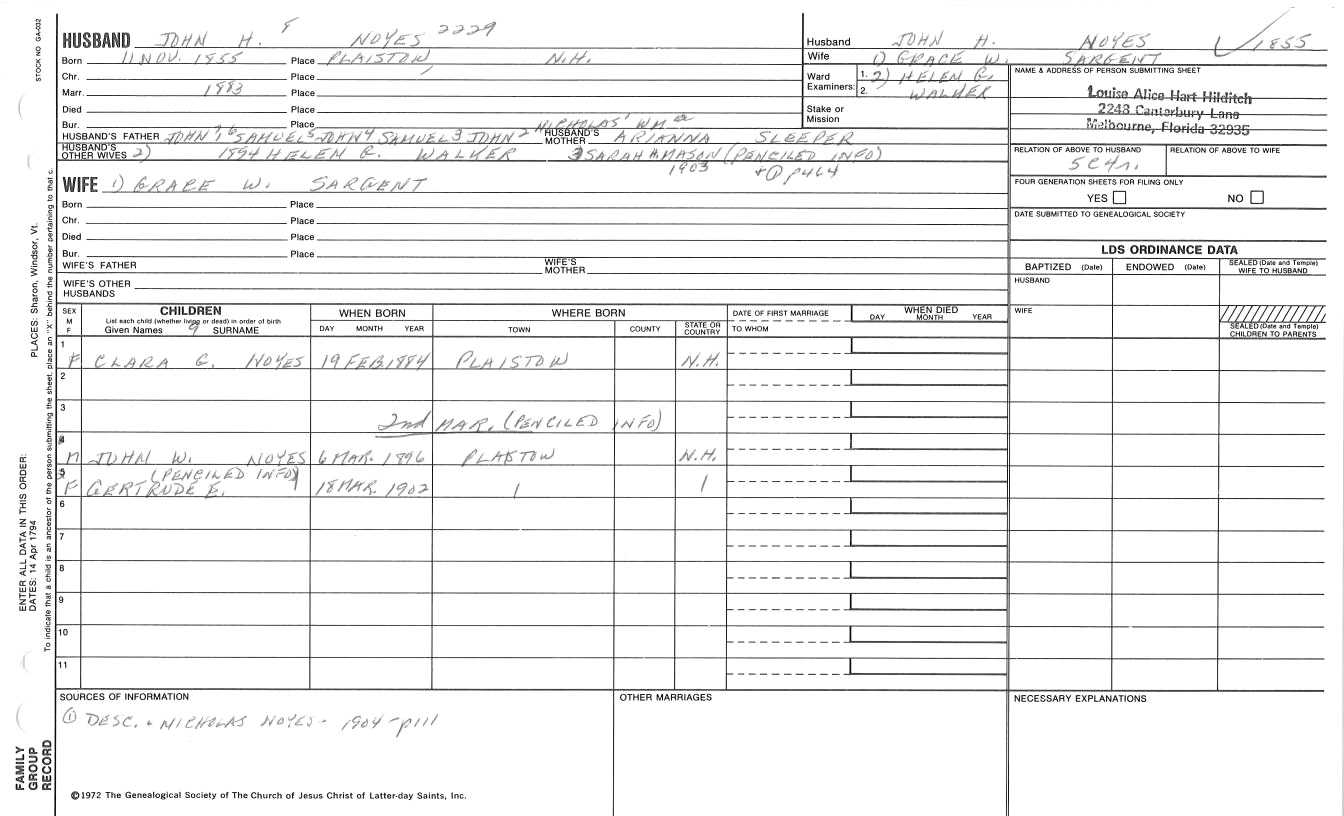 STOCK NO GA-032
HUSBAND JOHN H. 8 NOYES 2229
Born 11 NOV. 1855 Place PLAISTOW, N.H.
Chr. Place
Marr. 1883 Place
Died Place
Bur. Place
HUSBAND'S FATHER JOHN 7, 6 SAMUEL 5 JOHN 4 SAMUEL 3 JOHN 2 NICHOLAS 1 WM HUSBAND'S MOTHER ARIANNA SLEEPER
HUSBAND'S OTHER WIVES 2) 1894 HELEN G. WALKER 3 SARAH H. MASON (PENCILED INFO)
1903 + ① p464
WIFE 1) GRACE W. SARGENT
Born Place
Chr. Place
Died Place
Bur. Place
WIFE'S FATHER WIFE'S MOTHER
WIFE'S OTHER HUSBANDS
Husband JOHN H. NOYES 1855
Wife 1) GRACE W. SARGENT
Ward Examiners: 1. 2) HELEN G.
2. WALKER
Stake or Mission
NAME & ADDRESS OF PERSON SUBMITTING SHEET
Louise Alice Hart Hilditch
2248 Canterbury Lane
Melbourne, Florida 32935
RELATION OF ABOVE TO HUSBAND RELATION OF ABOVE TO WIFE
5C4r.
FOUR GENERATION SHEETS FOR FILING ONLY
YES NO
DATE SUBMITTED TO GENEALOGICAL SOCIETY
LDS ORDINANCE DATA
BAPTIZED (Date) ENDOWED (Date) SEALED (Date and Temple) WIFE TO HUSBAND
HUSBAND
WIFE
SEALED (Date and Temple) CHILDREN TO PARENTS
SEX M F CHILDREN WHEN BORN WHERE BORN DATE OF FIRST MARRIAGE WHEN DIED
List each child (whether living or dead) in order of birth
Given Names 9 SURNAME DAY MONTH YEAR TOWN COUNTY STATE OR COUNTRY TO WHOM DAY MONTH YEAR
1 F CLARA G. NOYES 19 FEB. 1884 PLAISTOW N.H.
2
3 2nd MAR. (PENCILED INFO)
4 M JOHN W. NOYES 6 MAR. 1896 PLAISTOW N.H.
(PENCILED INFO)
5 F GERTRUDE E. 18 MAR. 1902
6
7
8
9
10
11
SOURCES OF INFORMATION OTHER MARRIAGES NECESSARY EXPLANATIONS
① DESC. + NICHOLAS NOYES - 1904 - p111
©1972 The Genealogical Society of The Church of Jesus Christ of Latter-day Saints, Inc.
FAMILY GROUP RECORD
ENTER ALL DATA IN THIS ORDER:
DATES: 14 Apr 1794
PLACES: Sharon, Windsor, Vt.
To indicate that a child is an ancestor of the person submitting the sheet, place an "X" behind the number pertaining to that c.